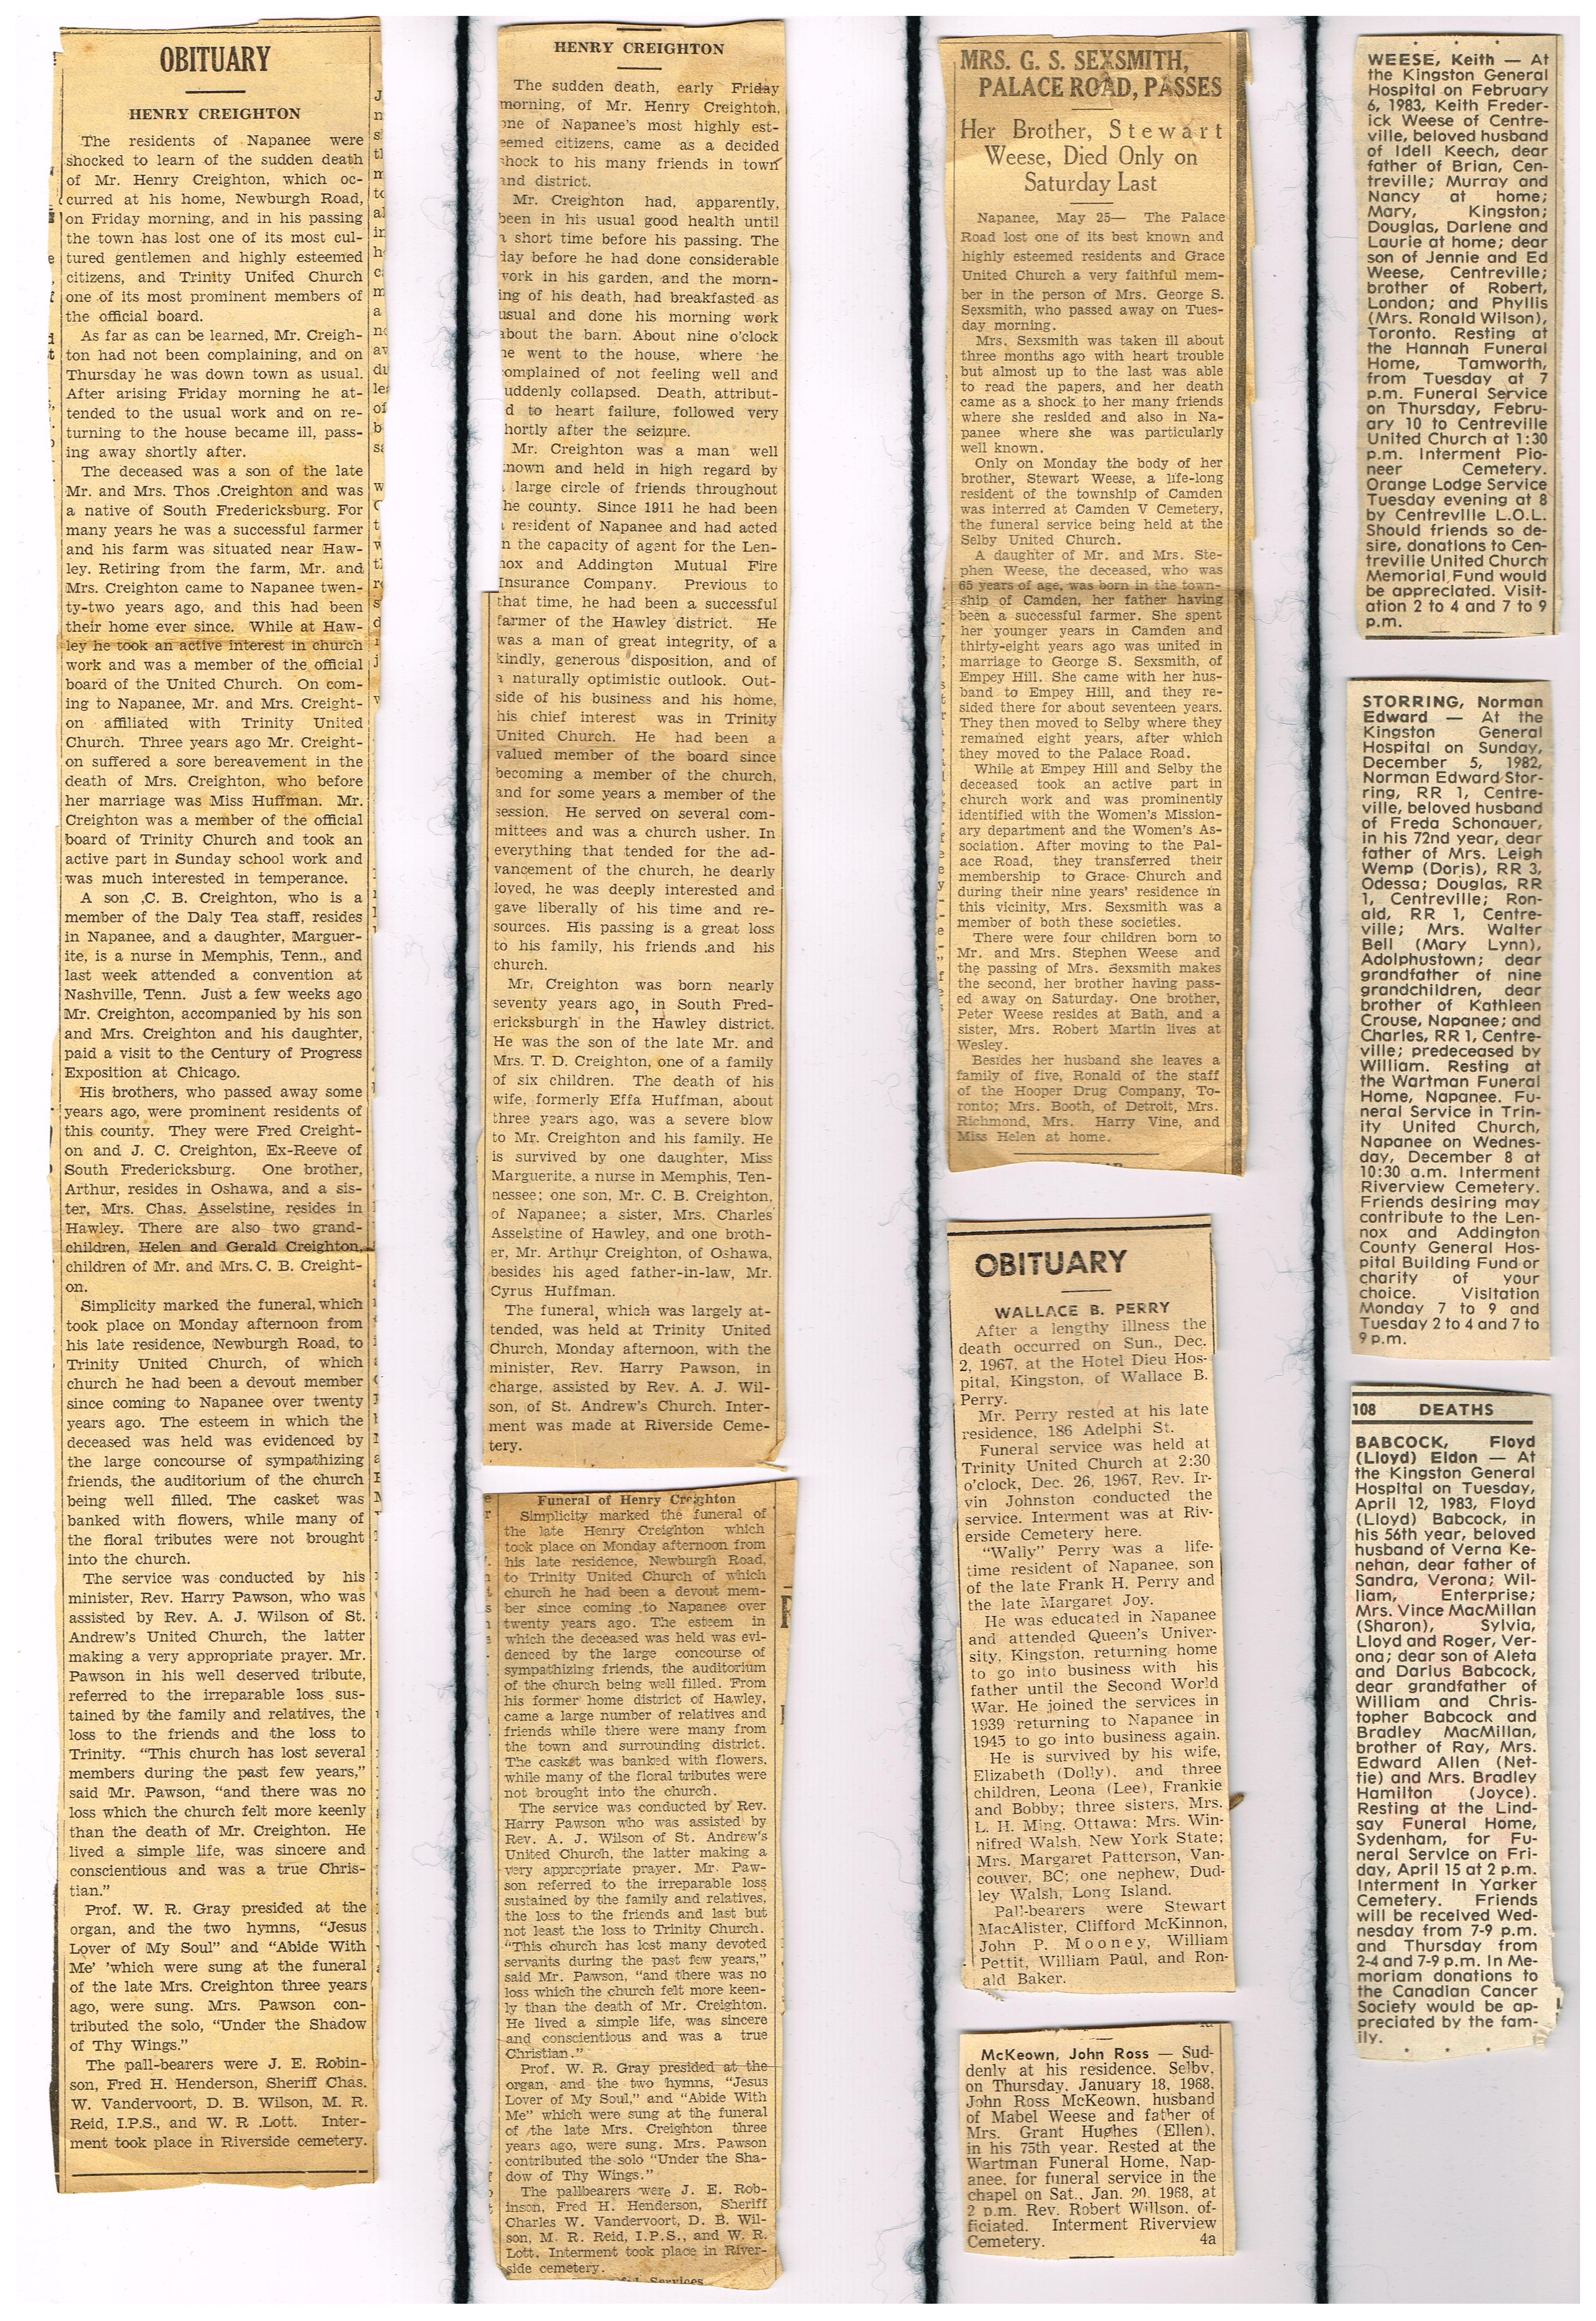 OBITUARY
HENRY CREIGHTON
The residents of Napanee were
shocked to learn of the sudden death
of Mr. Henry Creighton, which oc-
curred at his home, Newburgh Road,
on Friday morning, and in his passing
the town has lost one of its most cul-
tured gentlemen and highly esteemed
citizens, and Trinity United Church
one of its most prominent members of
the official board.
As far as can be learned, Mr. Creigh-
ton had not been complaining, and on
Thursday he was down town as usual.
After arising Friday morning he at-
tended to the usual work and on re-
turning to the house became ill, pass-
ing away shortly after.
The deceased was a son of the late
Mr. and Mrs. Thos .Creighton and was
a native of South Fredericksburg. For
many years he was a successful farmer
and his farm was situated near Haw-
ley. Retiring from the farm, Mr. and
Mrs. Creighton came to Napanee twen-
ty-two years ago, and this had been
their home ever since. While at Haw-
ley he took an active interest in church
work and was a member of the official
board of the United Church. On com-
ing to Napanee, Mr. and Mrs. Creight-
on affiliated with Trinity United
Church. Three years ago Mr. Creight-
on suffered a sore bereavement in the
death of Mrs. Creighton, who before
her marriage was Miss Huffman. Mr.
Creighton was a member of the official
board of Trinity Church and took an
active part in Sunday school work and
was much interested in temperance.
A son ,C. B. Creighton, who is a
member of the Daly Tea staff, resides
in Napanee, and a daughter, Marguer-
ite, is a nurse in Memphis, Tenn., and
last week attended a convention at
Nashville, Tenn. Just a few weeks ago
Mr. Creighton, accompanied by his son
and Mrs. Creighton and his daughter,
paid a visit to the Century of Progress
Exposition at Chicago.
His brothers, who passed away some
years ago, were prominent residents of
this county. They were Fred Creight-
on and J. C. Creighton, Ex-Reeve of
South Fredericksburg. One brother,
Arthur, resides in Oshawa, and a sis-
ter, Mrs. Chas. Asselstine, resides in
Hawley. There are also two grand-
children, Helen and Gerald Creighton,
children of Mr. and Mrs. C. B. Creight-
on.
Simplicity marked the funeral, which
took place on Monday afternoon from
his late residence, Newburgh Road, to
Trinity United Church, of which
church he had been a devout member
since coming to Napanee over twenty
years ago. The esteem in which the
deceased was held was evidenced by
the large concourse of sympathizing
friends, the auditorium of the church
being well filled. The casket was
banked with flowers, while many of
the floral tributes were not brought
into the church.
The service was conducted by his
minister, Rev. Harry Pawson, who was
assisted by Rev. A. J. Wilson of St.
Andrew's United Church, the latter
making a very appropriate prayer. Mr.
Pawson in his well deserved tribute,
referred to the irreparable loss sus-
tained by the family and relatives, the
loss to the friends and the loss to
Trinity. "This church has lost several
members during the past few years,"
said Mr. Pawson, "and there was no
loss which the church felt more keenly
than the death of Mr. Creighton. He
lived a simple life, was sincere and
conscientious and was a true Chris-
tian."
Prof. W. R. Gray presided at the
organ, and the two hymns, "Jesus
Lover of My Soul" and "Abide With
Me' 'which were sung at the funeral
of the late Mrs. Creighton three years
ago, were sung. Mrs. Pawson con-
tributed the solo, "Under the Shadow
of Thy Wings."
The pall-bearers were J. E. Robin-
son, Fred H. Henderson, Sheriff Chas.
W. Vandervoort, D. B. Wilson, M. R.
Reid, I.P.S., and W. R .Lott. Inter-
ment took place in Riverside cemetery.
HENRY CREIGHTON
The sudden death, early Friday
morning, of Mr. Henry Creighton,
one of Napanee's most highly est-
eemed citizens, came as a decided
shock to his many friends in town
and district.
Mr. Creighton had, apparently,
been in his usual good health until
a short time before his passing. The
day before he had done considerable
work in his garden, and the morn-
ing of his death, had breakfasted as
usual and done his morning work
about the barn. About nine o'clock
he went to the house, where he
complained of not feeling well and
suddenly collapsed. Death, attribut-
ed to heart failure, followed very
shortly after the seizure.
Mr. Creighton was a man well
known and held in high regard by
a large circle of friends throughout
the county. Since 1911 he had been
a resident of Napanee and had acted
in the capacity of agent for the Len-
nox and Addington Mutual Fire
Insurance Company. Previous to
that time, he had been a successful
farmer of the Hawley district. He
was a man of great integrity, of a
kindly, generous disposition, and of
a naturally optimistic outlook. Out-
side of his business and his home,
his chief interest was in Trinity
United Church. He had been a
valued member of the board since
becoming a member of the church,
and for some years a member of the
session. He served on several com-
mittees and was a church usher. In
everything that tended for the ad-
vancement of the church, he dearly
loved, he was deeply interested and
gave liberally of his time and re-
sources. His passing is a great loss
to his family, his friends and his
church.
Mr. Creighton was born nearly
seventy years ago, in South Fred-
ericksburgh in the Hawley district.
He was the son of the late Mr. and
Mrs. T. D. Creighton, one of a family
of six children. The death of his
wife, formerly Effa Huffman, about
three years ago, was a severe blow
to Mr. Creighton and his family. He
is survived by one daughter, Miss
Marguerite, a nurse in Memphis, Ten-
nessee; one son, Mr. C. B. Creighton,
of Napanee; a sister, Mrs. Charles
Asselstine of Hawley, and one broth-
er, Mr. Arthur Creighton, of Oshawa,
besides his aged father-in-law, Mr.
Cyrus Huffman.
The funeral, which was largely at-
tended, was held at Trinity United
Church, Monday afternoon, with the
minister, Rev. Harry Pawson, in
charge, assisted by Rev. A. J. Wil-
son, of St. Andrew's Church. Inter-
ment was made at Riverside Ceme-
tery.
Funeral of Henry Creighton
Simplicity marked the funeral of
the late Henry Creighton which
took place on Monday afternoon from
his late residence, Newburgh Road,
to Trinity United Church of which
church he had been a devout mem-
ber since coming to Napanee over
twenty years ago. The esteem in
which the deceased was held was evi-
denced by the large concourse of
sympathizing friends, the auditorium
of the church being well filled. From
his former home district of Hawley,
came a large number of relatives and
friends while there were many from
the town and surrounding district.
The casket was banked with flowers,
while many of the floral tributes were
not brought into the church.
The service was conducted by Rev.
Harry Pawson who was assisted by
Rev. A. J. Wilson of St. Andrew's
United Church, the latter making a
very appropriate prayer. Mr. Paw-
son referred to the irreparable loss
sustained by the family and relatives,
the loss to the friends and last but
not least the loss to Trinity Church.
"This church has lost many devoted
servants during the past few years,"
said Mr. Pawson, "and there was no
loss which the church felt more keen-
ly than the death of Mr. Creighton.
He lived a simple life, was sincere
and conscientious and was a true
Christian."
Prof. W. R. Gray presided at the
organ, and the two hymns, "Jesus
Lover of My Soul," and "Abide With
Me" which were sung at the funeral
of the late Mrs. Creighton three
years ago, were sung. Mrs. Pawson
contributed the solo "Under the Sha-
dow of Thy Wings."
The pallbearers were J. E. Rob-
inson, Fred H. Henderson, Sheriff
Charles W. Vandervoort, D. B. Wil-
son, M. R. Reid, I.P.S., and W. R.
Lott. Interment took place in River-
side cemetery.
MRS. G. S. SEXSMITH,
PALACE ROAD, PASSES
Her Brother, Stewart
Weese, Died Only on
Saturday Last
Napanee, May 25— The Palace
Road lost one of its best known and
highly esteemed residents and Grace
United Church a very faithful mem-
ber in the person of Mrs. George S.
Sexsmith, who passed away on Tues-
day morning.
Mrs. Sexsmith was taken ill about
three months ago with heart trouble
but almost up to the last was able
to read the papers, and her death
came as a shock to her many friends
where she resided and also in Na-
panee where she was particularly
well known.
Only on Monday the body of her
brother, Stewart Weese, a life-long
resident of the township of Camden
was interred at Camden V Cemetery,
the funeral service being held at the
Selby United Church.
A daughter of Mr. and Mrs. Ste-
phen Weese, the deceased, who was
65 years of age, was born in the town-
ship of Camden, her father having
been a successful farmer. She spent
her younger years in Camden and
thirty-eight years ago was united in
marriage to George S. Sexsmith, of
Empey Hill. She came with her hus-
band to Empey Hill, and they re-
sided there for about seventeen years.
They then moved to Selby where they
remained eight years, after which
they moved to the Palace Road.
While at Empey Hill and Selby the
deceased took an active part in
church work and was prominently
identified with the Women's Mission-
ary department and the Women's As-
sociation. After moving to the Pal-
ace Road, they transferred their
membership to Grace Church and
during their nine years' residence in
this vicinity, Mrs. Sexsmith was a
member of both these societies.
There were four children born to
Mr. and Mrs. Stephen Weese and
the passing of Mrs. Sexsmith makes
the second, her brother having pass-
ed away on Saturday. One brother,
Peter Weese resides at Bath, and a
sister, Mrs. Robert Martin lives at
Wesley.
Besides her husband she leaves a
family of five, Ronald of the staff
of the Hooper Drug Company, To-
ronto; Mrs. Booth, of Detroit, Mrs.
Richmond, Mrs. Harry Vine, and
Miss Helen at home.
OBITUARY
WALLACE B. PERRY
After a lengthy illness the
death occurred on Sun., Dec.
2, 1967, at the Hotel Dieu Hos-
pital, Kingston, of Wallace B.
Perry.
Mr. Perry rested at his late
residence, 186 Adelphi St.
Funeral service was held at
Trinity United Church at 2:30
o'clock, Dec. 26, 1967, Rev. Ir-
vin Johnston conducted the
service. Interment was at Riv-
erside Cemetery here.
"Wally" Perry was a life-
time resident of Napanee, son
of the late Frank H. Perry and
the late Margaret Joy.
He was educated in Napanee
and attended Queen's Univer-
sity, Kingston, returning home
to go into business with his
father until the Second World
War. He joined the services in
1939 returning to Napanee in
1945 to go into business again.
He is survived by his wife,
Elizabeth (Dolly), and three
children, Leona (Lee), Frankie
and Bobby; three sisters, Mrs.
L. H. Ming, Ottawa; Mrs. Win-
nifred Walsh, New York State;
Mrs. Margaret Patterson, Van-
couver, BC; one nephew, Dud-
ley Walsh, Long Island.
Pall-bearers were Stewart
MacAlister, Clifford McKinnon,
John P. Mooney, William
Pettit, William Paul, and Ron-
ald Baker.
McKeown, John Ross — Sud-
denly at his residence, Selby,
on Thursday, January 18, 1968,
John Ross McKeown, husband
of Mabel Weese and father of
Mrs. Grant Hughes (Ellen),
in his 75th year. Rested at the
Wartman Funeral Home, Nap-
anee, for funeral service in the
chapel on Sat., Jan. 20, 1968, at
2 p.m. Rev. Robert Willson, of-
ficiated. Interment Riverview
Cemetery. 4a
WEESE, Keith — At
the Kingston General
Hospital on February
6, 1983, Keith Freder-
ick Weese of Centre-
ville, beloved husband
of Idell Keech, dear
father of Brian, Cen-
treville; Murray and
Nancy at home;
Mary, Kingston;
Douglas, Darlene and
Laurie at home; dear
son of Jennie and Ed
Weese, Centreville;
brother of Robert,
London; and Phyllis
(Mrs. Ronald Wilson),
Toronto. Resting at
the Hannah Funeral
Home, Tamworth,
from Tuesday at 7
p.m. Funeral Service
on Thursday, Febru-
ary 10 to Centreville
United Church at 1:30
p.m. Interment Pio-
neer Cemetery.
Orange Lodge Service
Tuesday evening at 8
by Centreville L.O.L.
Should friends so de-
sire, donations to Cen-
treville United Church
Memorial Fund would
be appreciated. Visit-
ation 2 to 4 and 7 to 9
p.m.
STORRING, Norman
Edward — At the
Kingston General
Hospital on Sunday,
December 5, 1982,
Norman Edward Stor-
ring, RR 1, Centre-
ville, beloved husband
of Freda Schonauer,
in his 72nd year, dear
father of Mrs. Leigh
Wemp (Doris), RR 3,
Odessa; Douglas, RR
1, Centreville; Ron-
ald, RR 1, Centre-
ville; Mrs. Walter
Bell (Mary Lynn),
Adolphustown; dear
grandfather of nine
grandchildren, dear
brother of Kathleen
Crouse, Napanee; and
Charles, RR 1, Centre-
ville; predeceased by
William. Resting at
the Wartman Funeral
Home, Napanee. Fu-
neral Service in Trin-
ity United Church,
Napanee on Wednes-
day, December 8 at
10:30 a.m. Interment
Riverview Cemetery.
Friends desiring may
contribute to the Len-
nox and Addington
County General Hos-
pital Building Fund or
charity of your
choice. Visitation
Monday 7 to 9 and
Tuesday 2 to 4 and 7 to
9 p.m.
108 DEATHS
BABCOCK, Floyd
(Lloyd) Eldon — At
the Kingston General
Hospital on Tuesday,
April 12, 1983, Floyd
(Lloyd) Babcock, in
his 56th year, beloved
husband of Verna Ke-
nehan, dear father of
Sandra, Verona; Wil-
liam, Enterprise;
Mrs. Vince MacMillan
(Sharon), Sylvia,
Lloyd and Roger, Ver-
ona; dear son of Aleta
and Darius Babcock,
dear grandfather of
William and Chris-
topher Babcock and
Bradley MacMillan,
brother of Ray, Mrs.
Edward Allen (Net-
tie) and Mrs. Bradley
Hamilton (Joyce).
Resting at the Lind-
say Funeral Home,
Sydenham, for Fu-
neral Service on Fri-
day, April 15 at 2 p.m.
Interment in Yarker
Cemetery. Friends
will be received Wed-
nesday from 7-9 p.m.
and Thursday from
2-4 and 7-9 p.m. In Me-
moriam donations to
the Canadian Cancer
Society would be ap-
preciated by the fam-
ily.